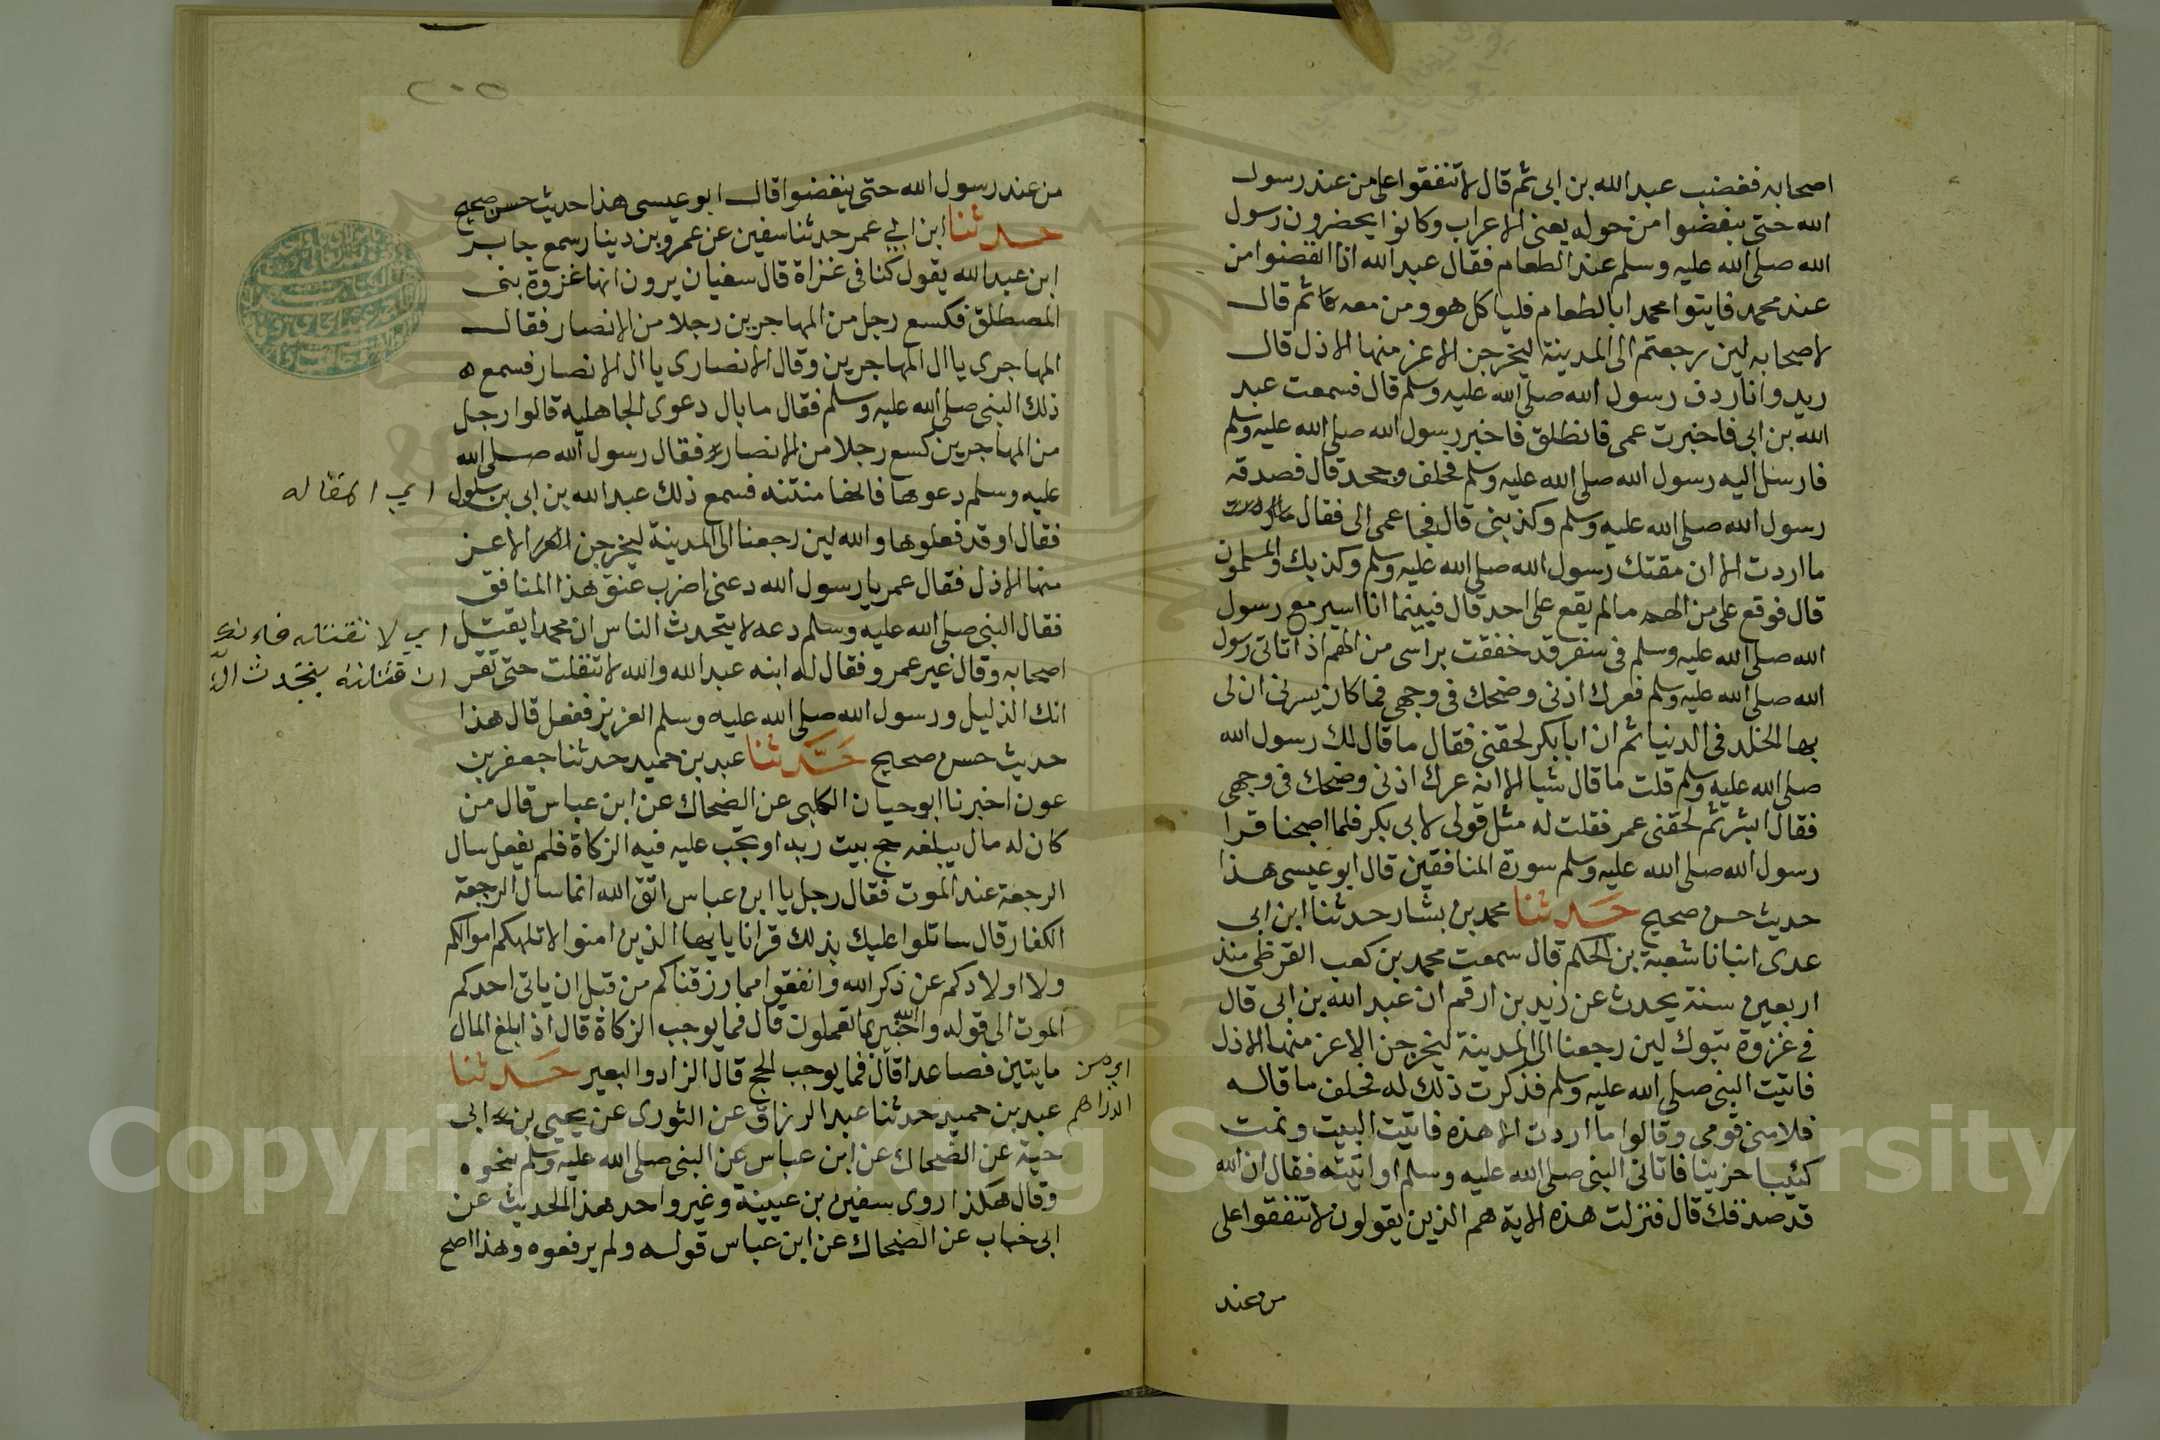 اصحابه فغضب عبد الله بن ابى ثم قال لا تنفقوا على من عند رسول
الله حتى ينفضوا من حوله يعنى الاعراب وكانوا يحضرون رسول
الله صلى الله عليه وسلم عند الطعام فقال عبد الله اذا انفضوا من
عند محمد فايتوا محمدا بالطعام فلياكل هو ومن معه ثم قال
لاصحابه لين رجعتم الى المدينة ليخرجن الاعز منها الاذل قال
زيد وانا ردف رسول الله صلى الله عليه وسلم قال فسمعت عبد
الله بن ابى فاخبرت عمى فانطلق فاخبر رسول الله صلى الله عليه وسلم
فارسل اليه رسول الله صلى الله عليه وسلم فحلف وجحد قال فصدقه
رسول الله صلى الله عليه وسلم وكذبنى قال فجا عمى الى فقال
ما اردت الا ان مقتك رسول الله صلى الله عليه وسلم وكذبك والمسلمون
قال فوقع على من الهم ما لم يقع على احد قال فبينما انا اسير مع رسول
الله صلى الله عليه وسلم فى سفر قد خفقت براسى من الهم اذ اتانى رسول
الله صلى الله عليه وسلم فعرك اذنى وضحك فى وجهى فما كان يسرنى ان لى
بها الخلد فى الدنيا ثم ان ابا بكر لحقنى فقال ما قال لك رسول الله
صلى الله عليه وسلم قلت ما قال شيا الا انه عرك اذنى وضحك فى وجهى
فقال ابشر ثم لحقنى عمر فقلت له مثل قولى لابى بكر فلما اصبحنا قرا
رسول الله صلى الله عليه وسلم سورة المنافقين قال ابو عيسى هذا
حديث حسن صحيح حدثنا محمد بن بشار حدثنا ابن ابى
عدى انبانا شعبة بن الحكم قال سمعت محمد بن كعب القرظى منذ
اربعين سنة يحدث عن زيد بن ارقم ان عبد الله بن ابى قال
فى غزوة تبوك لين رجعنا الى المدينة ليخرجن الاعز منها الاذل
فاتيت النبى صلى الله عليه وسلم فذكرت ذلك له فحلف ما قاله
فلامنى قومى وقالوا ما اردت الا هذه فاتيت البيت ونمت
كئيبا حزينا فاتانى النبى صلى الله عليه وسلم او اتيته فقال ان الله
قد صدقك قال فنزلت هذه الاية هم الذين يقولون لا تنفقوا على
من عند
٢٠٥
من عند رسول الله حتى ينفضوا قال ابو عيسى هذا حديث حسن صحيح
حدثنا ابن ابي عمر حدثنا سفين عن عمرو بن دينار سمع جابر
ابن عبد الله يقول كنا فى غزاة قال سفيان يرون انها غزوة بنى
المصطلق فكسع رجل من المهاجرين رجلا من الانصار فقال
المهاجرى يا ال المهاجرين وقال الانصارى يا ال الانصار فسمع
ذلك النبى صلى الله عليه وسلم فقال ما بال دعوى الجاهلية قالوا رجل
من المهاجرين كسع رجلا من الانصار فقال رسول الله صلى الله
عليه وسلم دعوها فانها منتنه فسمع ذلك عبد الله بن ابى بن سلول
اي المقاله
فقال او قد فعلوها والله لين رجعنا الى المدينة ليخرجن الاعز
منها الاذل فقال عمر يا رسول الله دعنى اضرب عنق هذا المنافق
فقال النبى صلى الله عليه وسلم دعه لا يتحدث الناس ان محمدا يقتل
اي لا تقتله فانك
اصحابه وقال غير عمرو فقال له ابنه عبد الله والله لا تنفلت حتى تقر
ان قتلته يتحدث
انك الذليل ورسول الله صلى الله عليه وسلم العزيز ففعل قال هذا
حديث حسن صحيح حدثنا عبد بن حميد حدثنا جعفر بن
عون اخبرنا ابو حيان الكلبى عن الضحاك عن ابن عباس قال من
كان له مال يبلغه حج بيت ربه او تجب عليه فيه الزكاة فلم يفعل سال
الرجعة عند الموت فقال رجل يا ابن عباس اتق الله انما سال الرجعة
الكفار قال ساتلوا عليك بذلك قرانا يا يها الذين امنوا لا تلهكم اموالكم
ولا اولادكم عن ذكر الله وانفقوا مما رزقناكم من قبل ان ياتى احدكم
الموت الى قوله والله خبير بما تعملون قال فما يوجب الزكاة قال اذا بلغ المال
مايتين فصاعدا قال فما يوجب الحج قال الزاد والبعير حدثنا
اي من
الدراهم
عبد بن حميد حدثنا عبد الرزاق عن الثورى عن يحيى بن ابى
حية عن الضحاك عن ابن عباس عن النبى صلى الله عليه وسلم بنحوه
وقال هكذا روى سفين بن عيينة وغير واحد هذا الحديث عن
ابى خباب عن الضحاك عن ابن عباس قوله ولم يرفعوه وهذا اصح
Copyright © King Saud University
1957